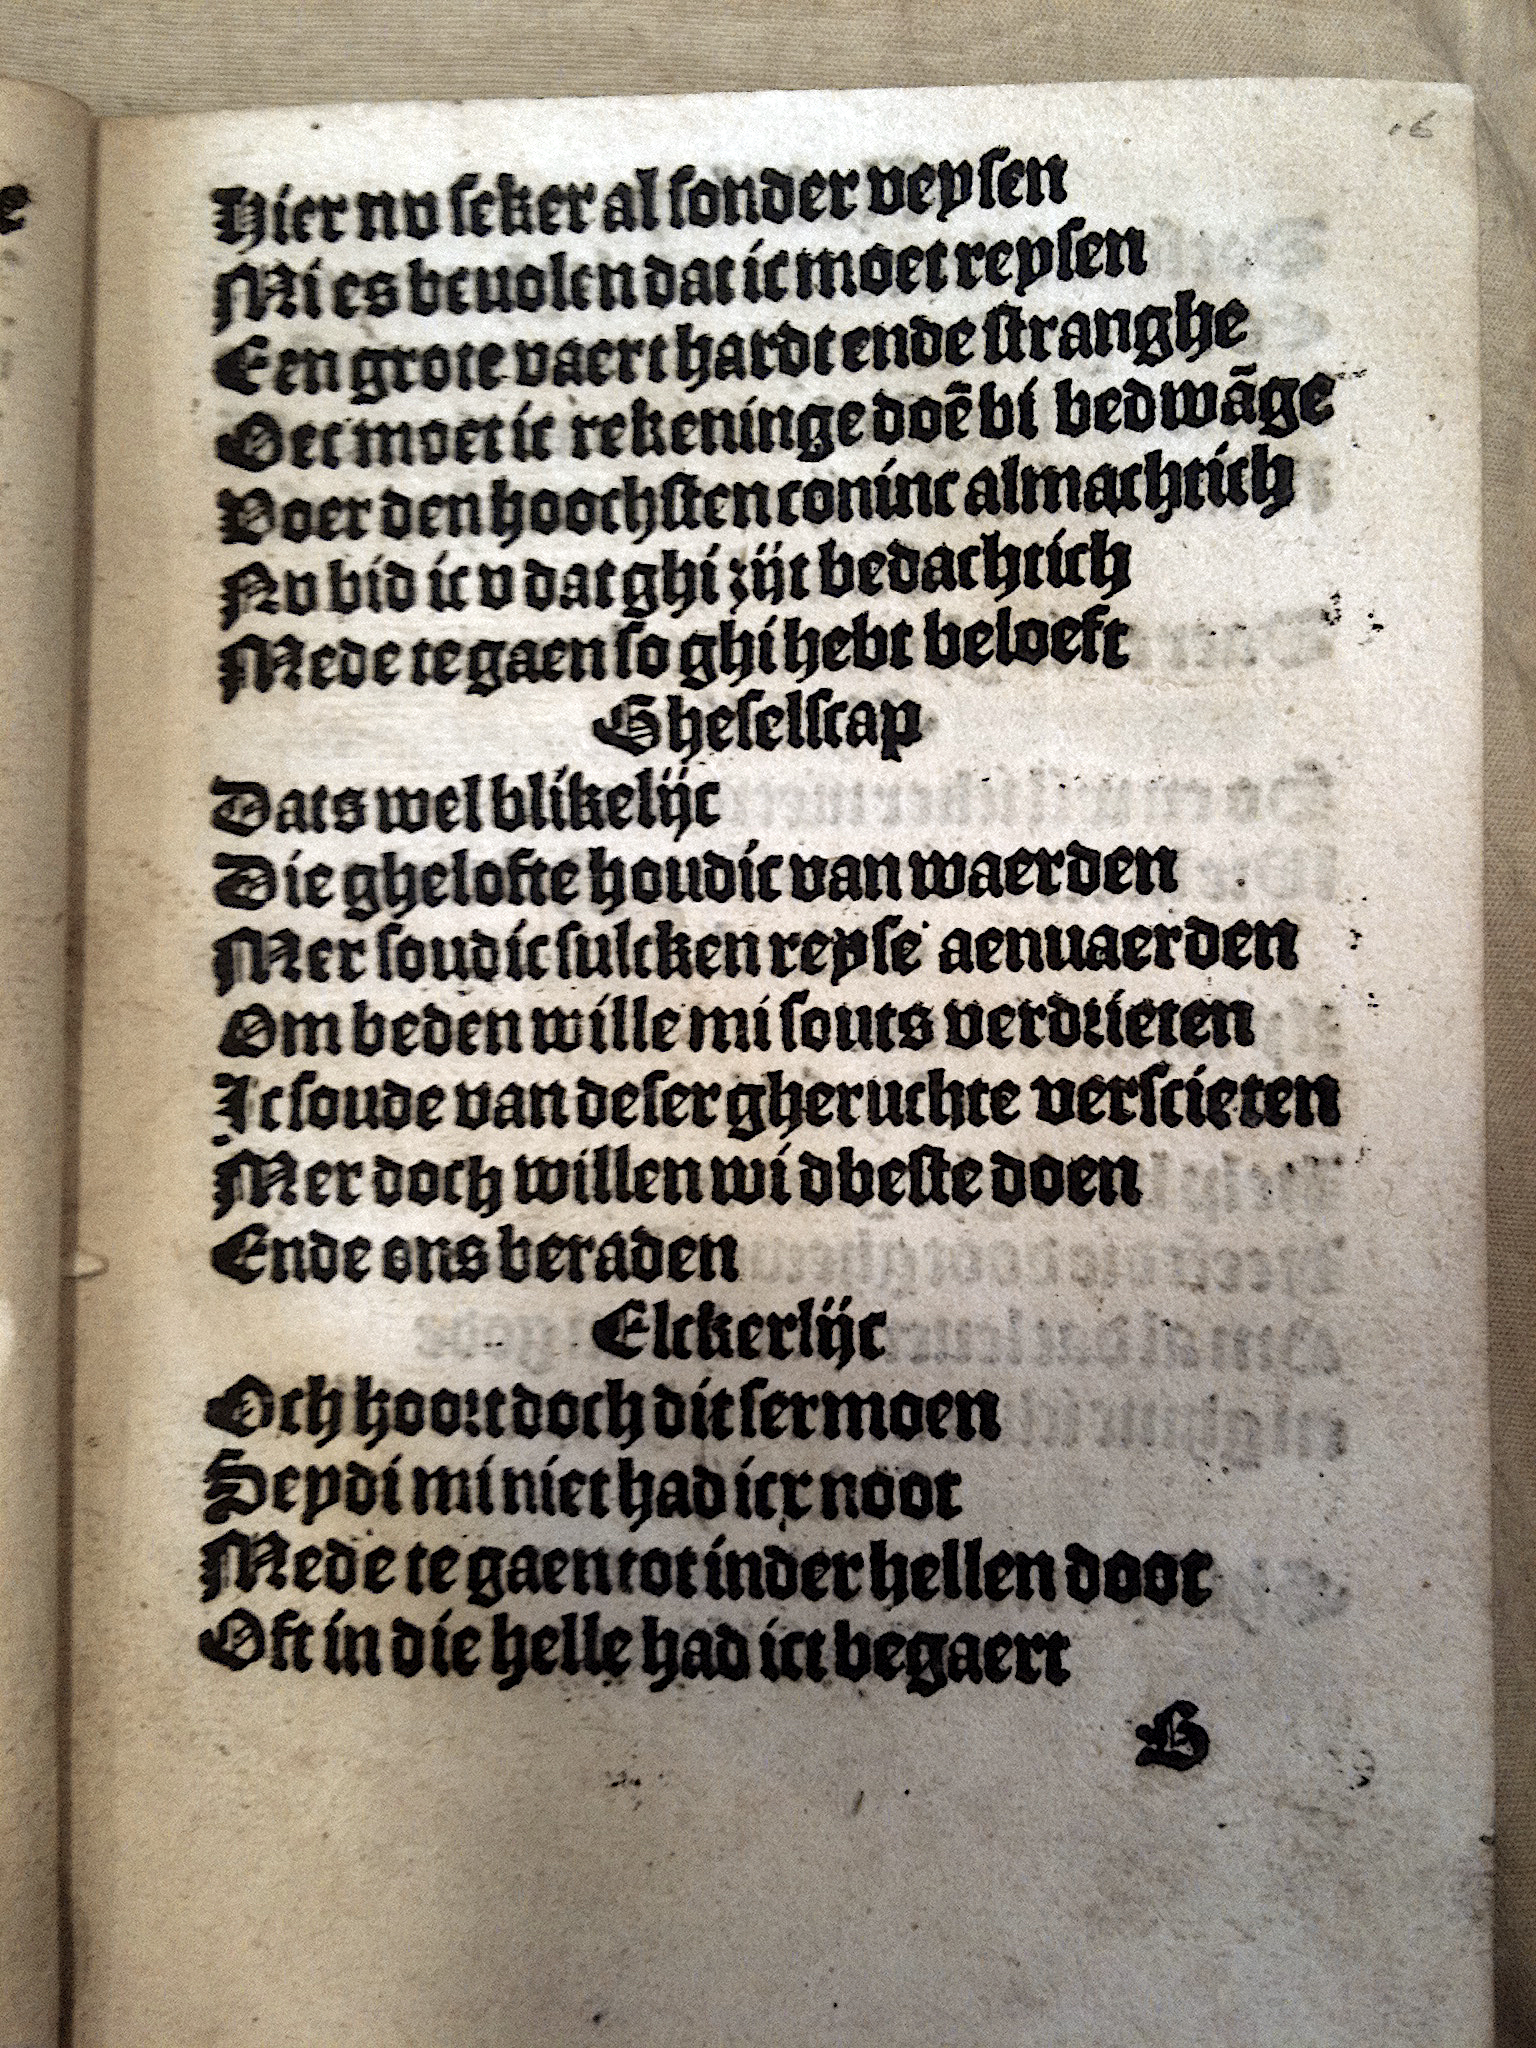 16
Hier nv seker al sonder veysen
Mi es beuolen dat ic moet reysen
Een grote vaert hardt ende stranghe
Oec moet ic rekeninge doẽ bi bedwãge
Voer den hoochsten coninc almachtich
Nv bid ic v dat ghi zijt bedachtich
Mede te gaen so ghi hebt beloeft
Gheselscap
Dats wel blikelijc
Die ghelofte houdic van waerden
Mer soudic sulcken reyse aenuaerden
Om beden wille mi souts verdrieten
Ic soude van deser gheruchte verscieten
Mer doch willen wi dbeste doen
Ende ons beraden
Elckerlijc
Och hoort doch dit sermoen
Seydi mi niet had icx noot
Mede te gaen tot inder hellen doot
Oft in die helle had ict begaert
B